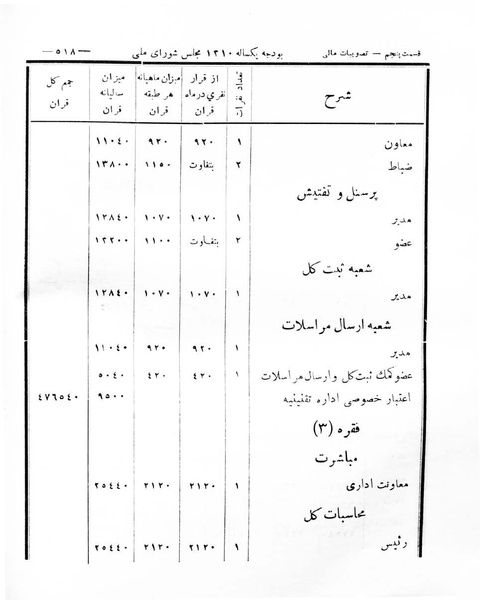 قسمت پنجم — تصویبات مالی بودجه یکساله ۱۳۱۰ مجلس شورای ملی —۵۱۸—
شرح تعداد نفرات از قرار نفری درماه قران میزان ماهیانه هر طبقه قران میزان سالیانه قران جمع کل قران
معاون ۱ ۹۲۰ ۹۲۰ ۱۱۰٤۰
ضباط ۲ بتفاوت ۱۱۵۰ ۱۳۸۰۰
پرسنل و تفتیش
مدیر ۱ ۱۰۷۰ ۱۰۷۰ ۱۲۸٤۰
عضو ۲ بتفاوت ۱۱۰۰ ۱۳۲۰۰
شعبه ثبت کل
مدیر ۱ ۱۰۷۰ ۱۰۷۰ ۱۲۸٤۰
شعبه ارسال مراسلات
مدیر ۱ ۹۲۰ ۹۲۰ ۱۱۰٤۰
عضو کمک ثبت کل و ارسال مراسلات ۱ ٤۲۰ ٤۲۰ ۵۰٤۰
اعتبار خصوصی اداره تقنینیه ۹۵۰۰ ٤۷٦۵٤۰
فقره (۳)
مباشرت
معاونت اداری ۱ ۲۱۲۰ ۲۱۲۰ ۲۵٤٤۰
محاسبات کل
رئیس ۱ ۲۱۲۰ ۲۱۲۰ ۲۵٤٤۰